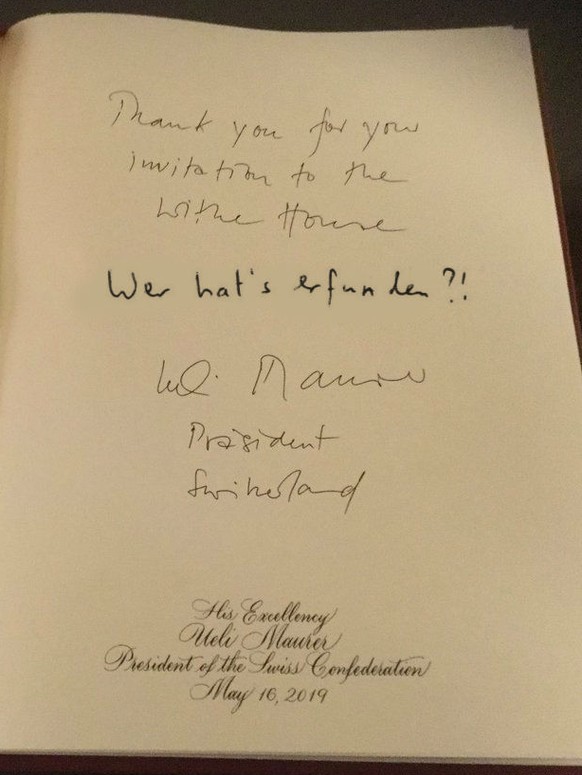 Thank you for your
invitation to the
Withe House
Wer hat's erfunden?!
Ueli Maurer
Präsident
Switzerland
His Excellency
Ueli Maurer
President of the Swiss Confederation
May 16, 2019